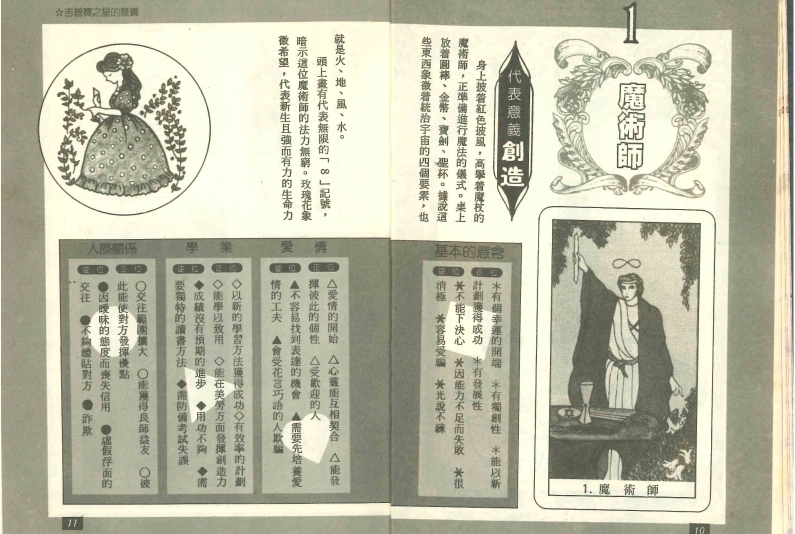 1
魔術師
代表意義 創造
身上披着紅色披風，高舉着魔杖的
魔術師，正準備進行魔法的儀式。桌上
放着圓棒、金幣、寶劍、聖杯。據說這
些東西象徵着統治宇宙的四個要素，也
1. 魔術師
基本的意含
正位
＊有個幸運的開端　＊有獨創性　＊能以新
計劃獲得成功　＊有發展性
逆位
＊不能下決心　＊因能力不足而失敗　＊很
消極　＊容易受騙　＊光說不練
10
☆吉普賽之星的意義
就是火、地、風、水。
頭上畫有代表無限的「∞」記號，
暗示這位魔術師的法力無窮。玫瑰花象
徵希望，代表新生且強而有力的生命力
愛情
正位
△愛情的開始　△心靈能互相契合　△能發
揮彼此的個性　△受歡迎的人
逆位
▲不容易找到表達的機會　▲需要先培養愛
情的工夫　▲會受花言巧語的人欺騙
學業
正位
◇以新的學習方法獲得成功◇有效率的計劃
◇能學以致用　◇能在美勞方面發揮創造力
逆位
◆成績沒有預期的進步　◆用功不夠　◆需
要獨特的讀書方法　◆需防備考試失誤
人際關係
正位
○交往範圍擴大　○能獲得良師益友　○彼
此能使對方發揮優點
逆位
●因曖昧的態度而喪失信用　●虛假浮面的
交往　●不夠體貼對方　●詐欺
11